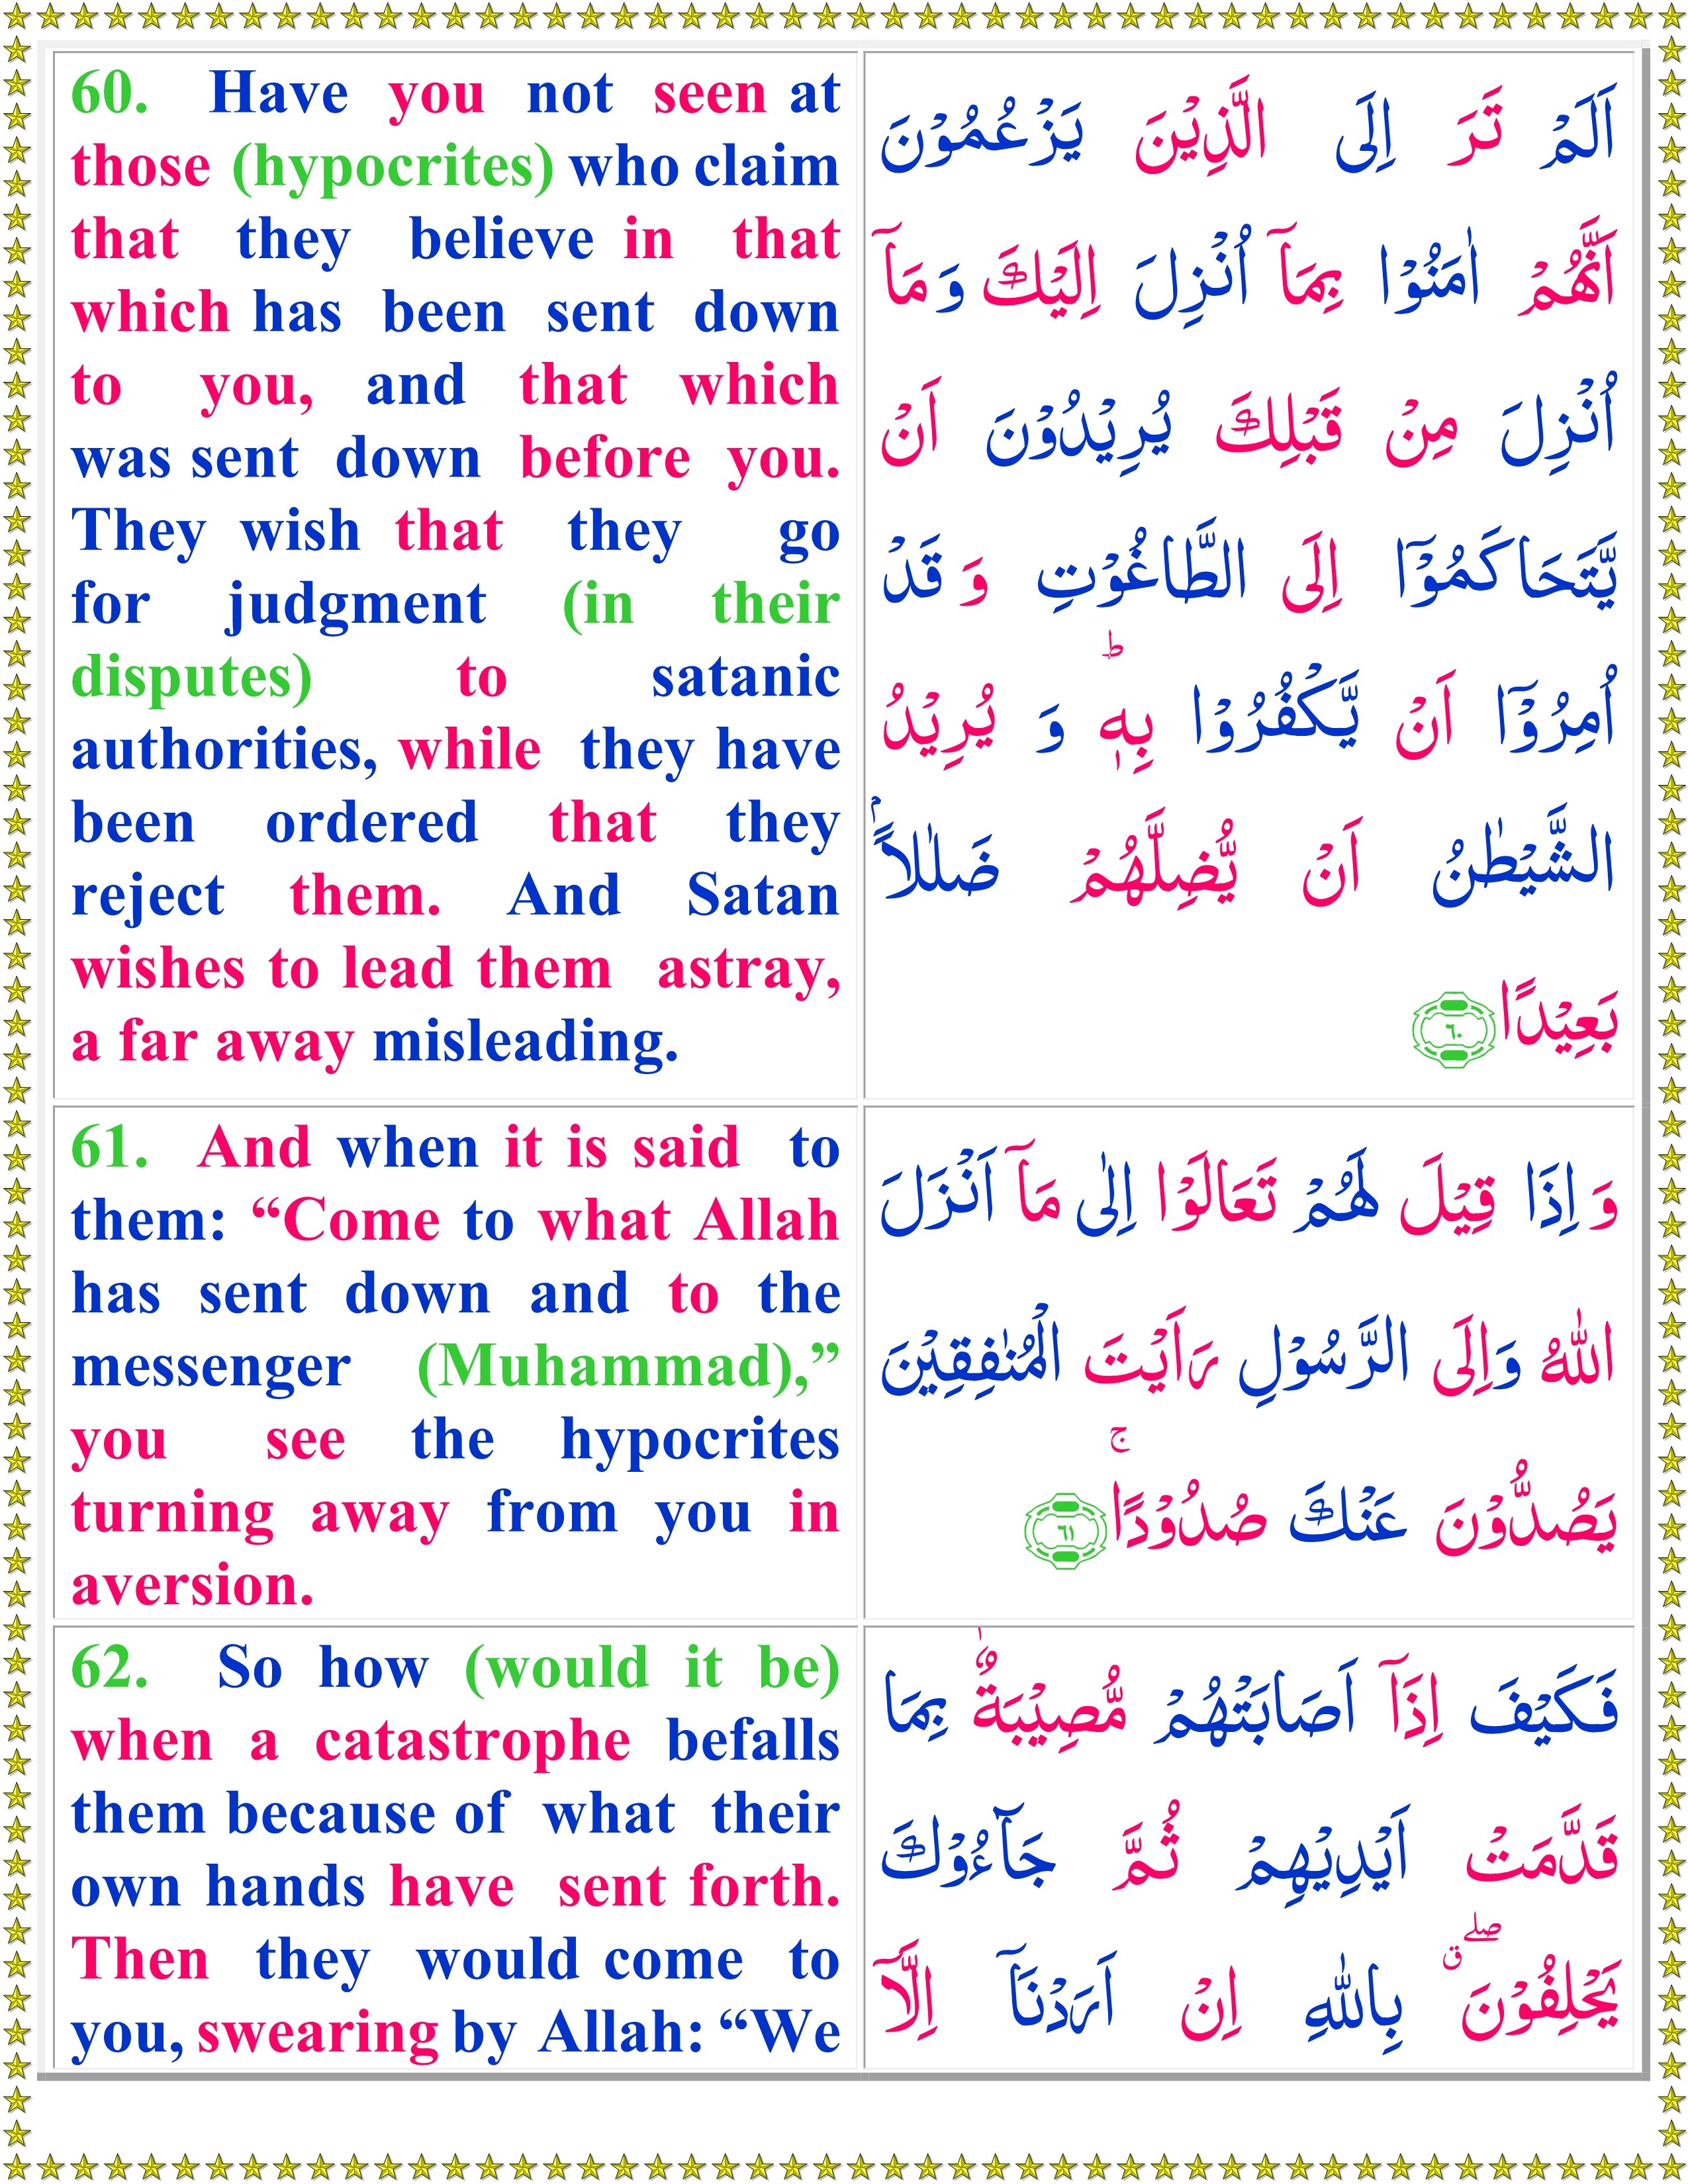 60. Have you not seen at
those (hypocrites) who claim
that they believe in that
which has been sent down
to you, and that which
was sent down before you.
They wish that they go
for judgment (in their
disputes) to satanic
authorities, while they have
been ordered that they
reject them. And Satan
wishes to lead them astray,
a far away misleading.
اَلَمْ تَرَ اِلَى الَّذِيْنَ يَزْعُمُوْنَ
اَنَّهُمْ اٰمَنُوْا بِمَاۤ اُنْزِلَ اِلَيْكَ وَ مَاۤ
اُنْزِلَ مِنْ قَبْلِكَ يُرِيْدُوْنَ اَنْ
يَّتَحَاكَمُوْۤا اِلَى الطَّاغُوْتِ وَ قَدْ
اُمِرُوْۤا اَنْ يَّكْفُرُوْا بِهٖ ؕ وَ يُرِيْدُ
الشَّيْطٰنُ اَنْ يُّضِلَّهُمْ ضَلٰلاًۢ
بَعِيْدًا ٦٠
61. And when it is said to
them: “Come to what Allah
has sent down and to the
messenger (Muhammad),”
you see the hypocrites
turning away from you in
aversion.
وَ اِذَا قِيْلَ لَهُمْ تَعَالَوْا اِلٰى مَاۤ اَنْزَلَ
اللّٰهُ وَاِلَى الرَّسُوْلِ رَاَيْتَ الْمُنٰفِقِيْنَ
يَصُدُّوْنَ عَنْكَ صُدُوْدًا ۚ ٦١
62. So how (would it be)
when a catastrophe befalls
them because of what their
own hands have sent forth.
Then they would come to
you, swearing by Allah: “We
فَكَيْفَ اِذَاۤ اَصَابَتْهُمْ مُّصِيْبَةٌۢ بِمَا
قَدَّمَتْ اَيْدِيْهِمْ ثُمَّ جَآءُوْكَ
يَحْلِفُوْنَ ۖ ق بِاللّٰهِ اِنْ اَرَدْنَاۤ اِلَّاۤ